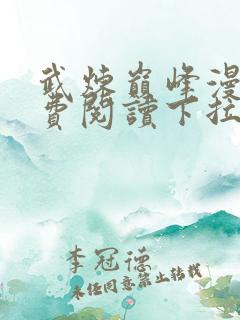 武炼巅峰漫
費閱讀下拉
李冠德
未经同意禁止转载